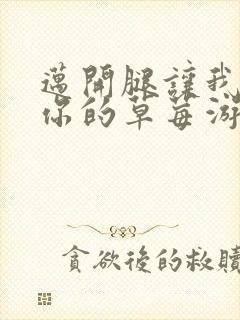 邁開腿讓我
你的草莓游
貪欲後的救贖